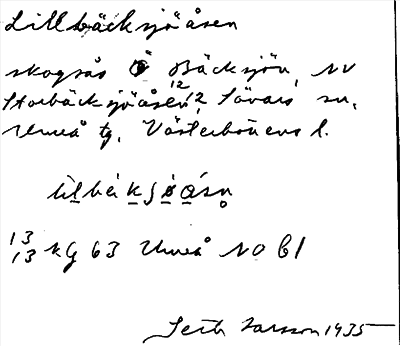 Lillbäcksjöåsen
skogsås Ö Bäcksjön, NV
12
Storbäcksjöåsen 12, Sävars sn,
Umeå tg, Västerbottens l.
13
13 kg 63 Umeå NO 61
Seth Larsson 1935